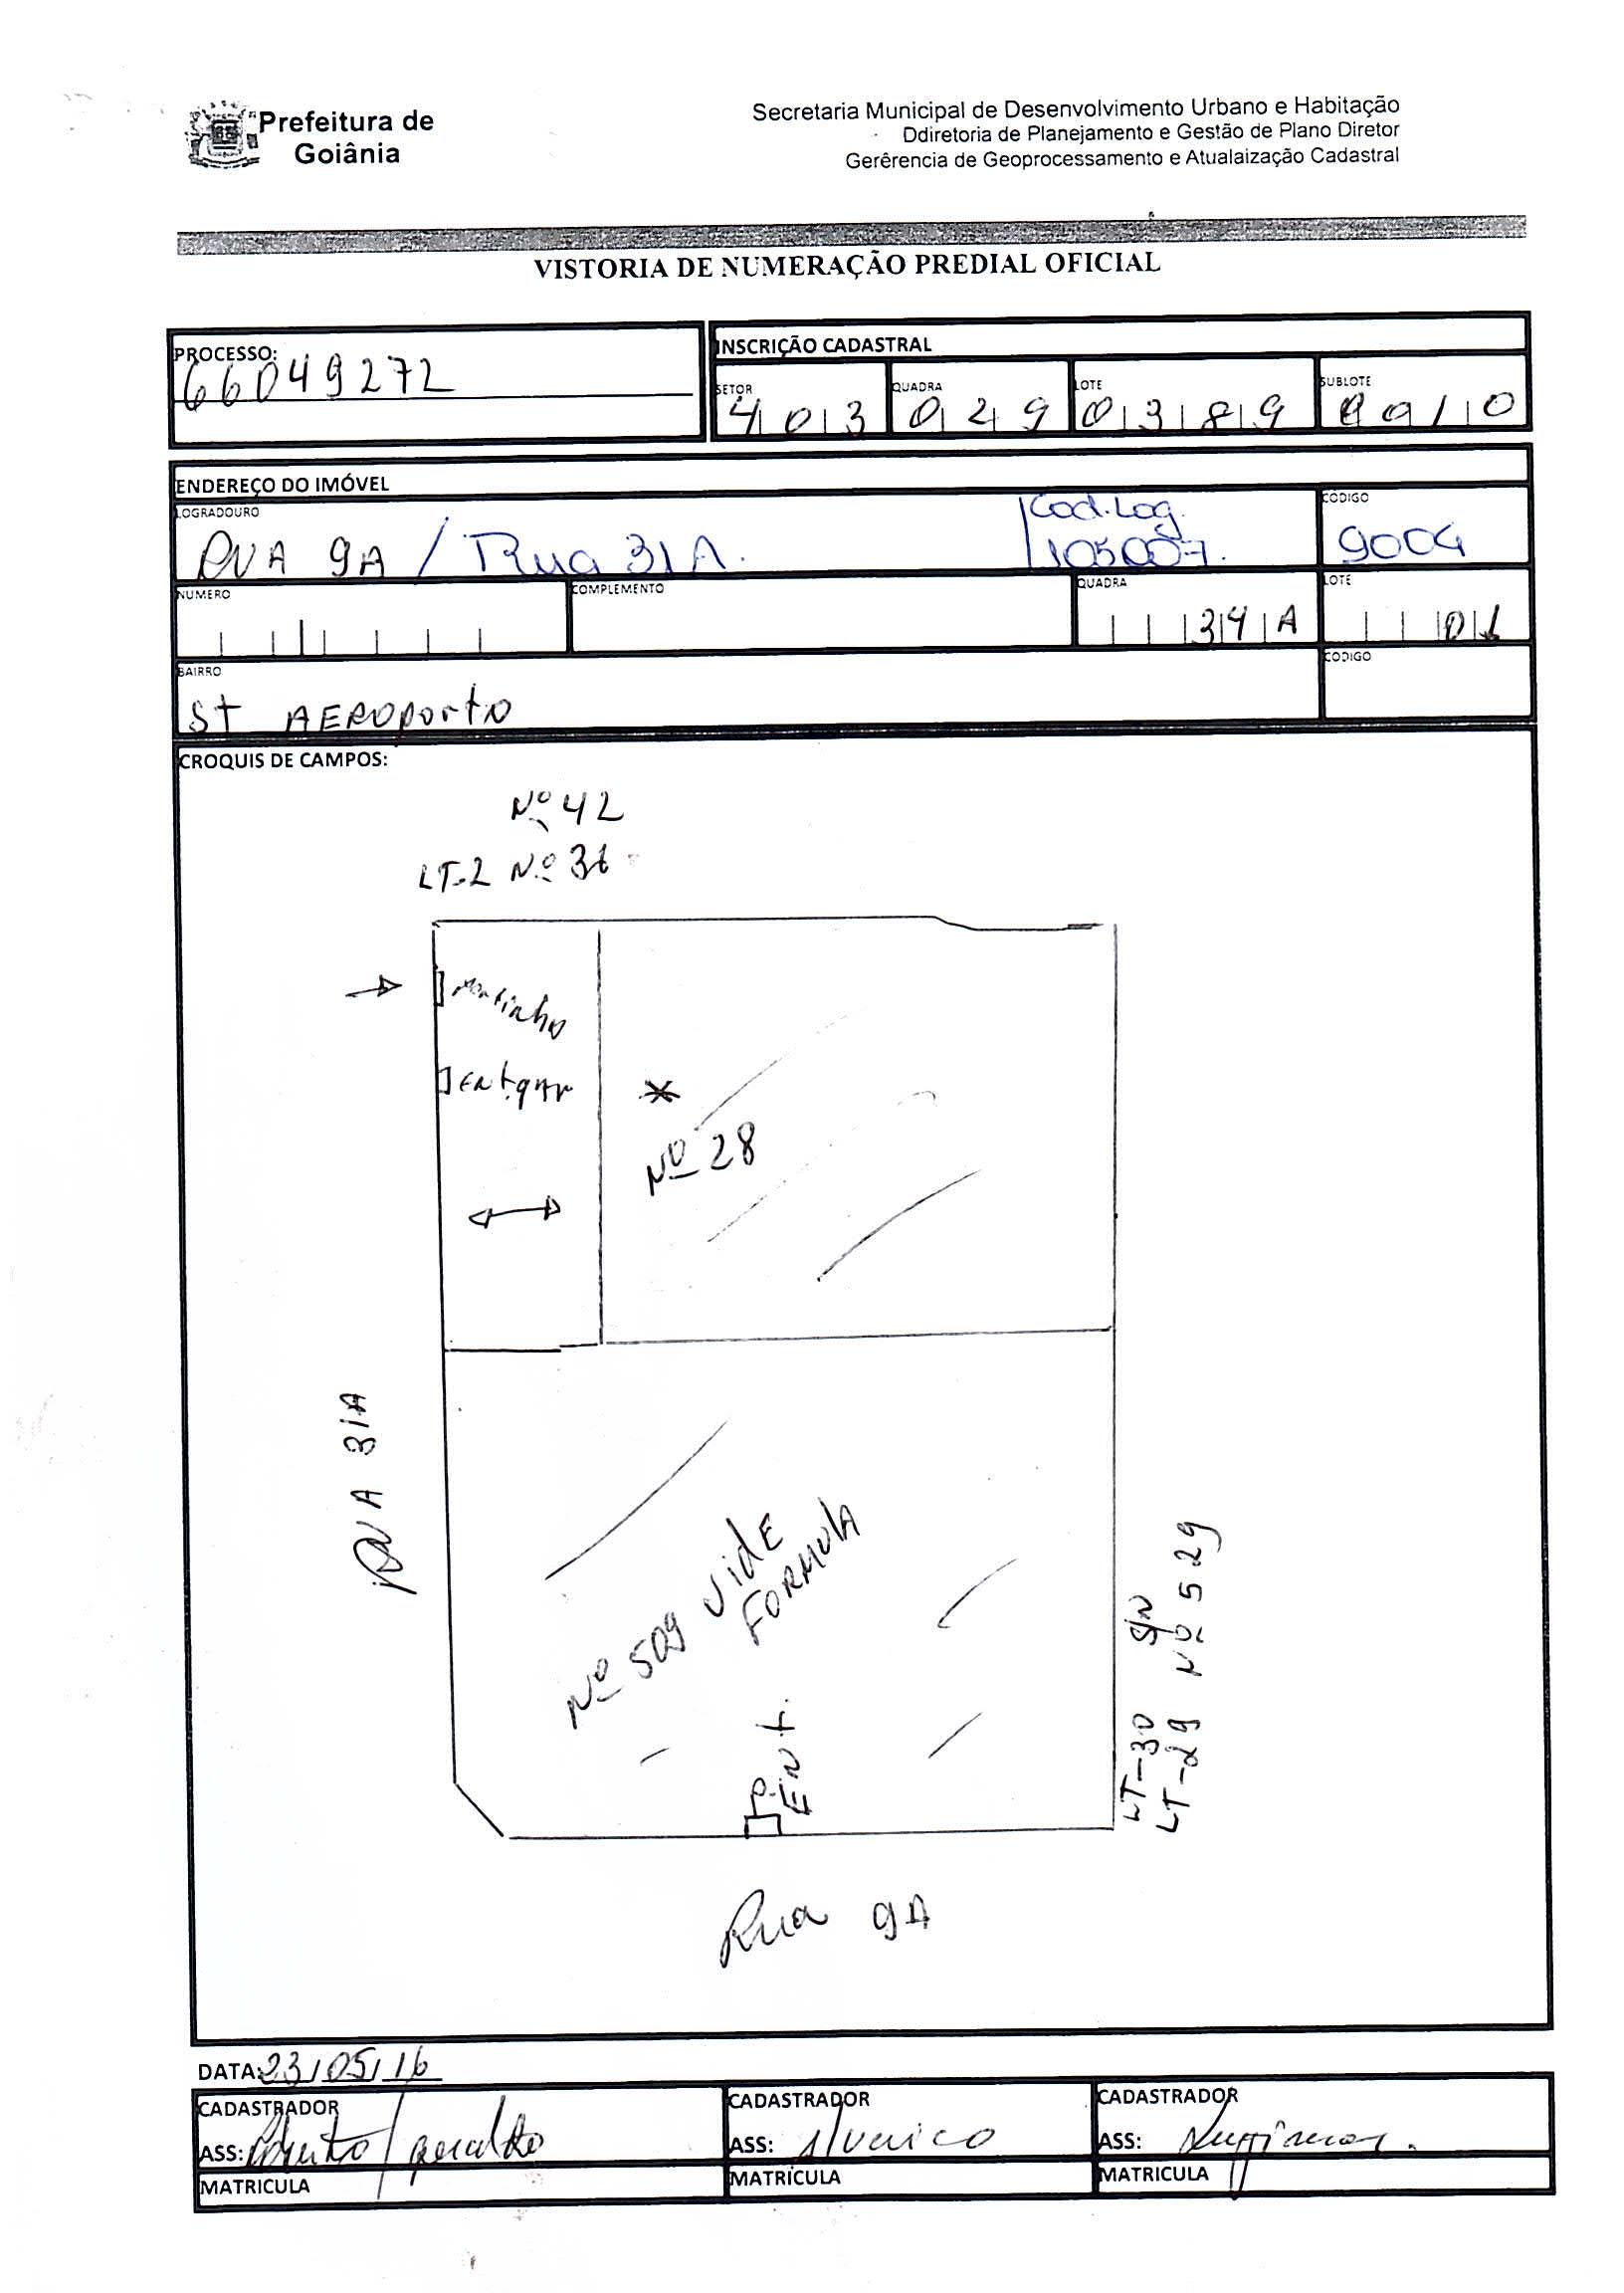 Prefeitura de
Goiânia
Secretaria Municipal de Desenvolvimento Urbano e Habitação
Ddiretoria de Planejamento e Gestão de Plano Diretor
Gerêrencia de Geoprocessamento e Atualaização Cadastral
VISTORIA DE NUMERAÇÃO PREDIAL OFICIAL
PROCESSO:
66049272
INSCRIÇÃO CADASTRAL
SETOR QUADRA LOTE SUBLOTE
403 029 0389
ENDEREÇO DO IMÓVEL
LOGRADOURO
CÓDIGO
RUA 9A / Rua 31A.
Cod.Log.
105007.
9004
NUMERO COMPLEMENTO QUADRA LOTE
34A 01
BAIRRO CODIGO
ST AEROPORTO
CROQUIS DE CAMPOS:
Nº 42
LT-2 Nº
ENt.
Nº 28
RUA 31A
Nº 509 VidE
FORMULA
ENt.
LT-30 S/N
LT-29 Nº 529
Rua 9A
DATA: 23/05/16
CADASTRADOR CADASTRADOR CADASTRADOR
ASS: geraldo ASS: ASS:
MATRICULA MATRÍCULA MATRICULA